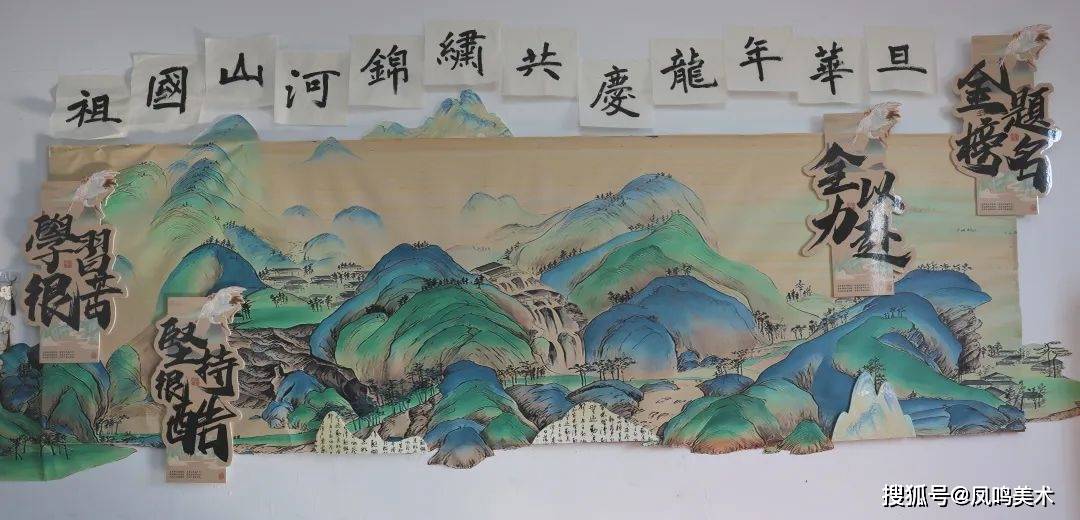 祖國山河錦繡共慶龍年華旦
學習很苦
堅持很酷
全力以赴
金榜題名
搜狐号@凤鸣美术